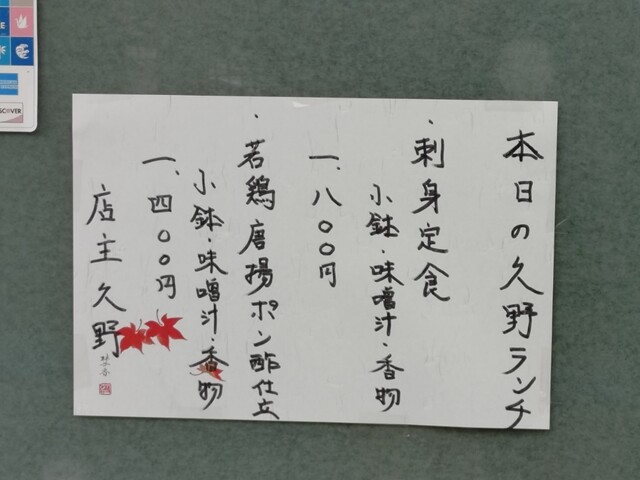 本日の久野ランチ
・刺身定食
小鉢・味噌汁・香物
一、八〇〇円
・若鶏唐揚ポン酢仕立
小鉢・味噌汁・香物
一、四〇〇円
店主 久野